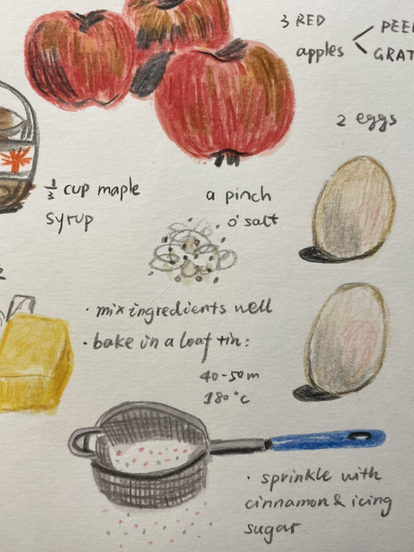 3 RED
apples
PEEL
GRAT
2 eggs
1/3 cup maple
syrup
a pinch
o' salt
· mix ingredients well
· bake in a loaf tin:
40-50m
180°c
· sprinkle with
cinnamon & icing
sugar